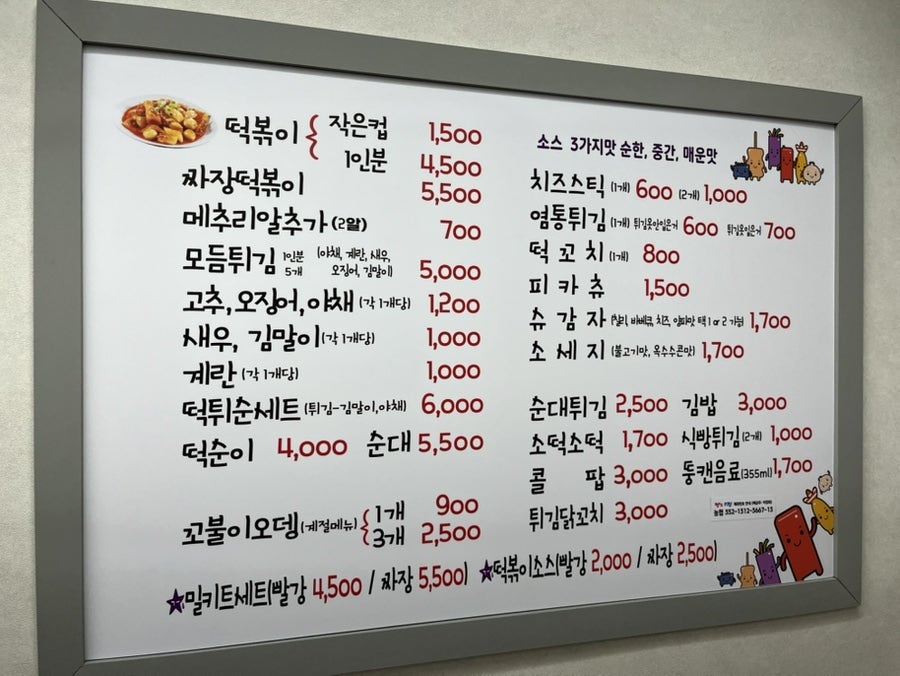 떡볶이 { 작은컵 1,500
1인분 4,500
짜장떡볶이 5,500
메추리알추가 (2알) 700
모듬튀김 1인분 5개 (야채, 계란, 새우, 오징어, 김말이) 5,000
고추, 오징어, 야채 (각 1개당) 1,200
새우, 김말이 (각 1개당) 1,000
계란 (각 1개당) 1,000
떡튀순세트 (튀김-김말이,야채) 6,000
떡순이 4,000 순대 5,500
꼬불이오뎅 (계절메뉴) { 1개 900
3개 2,500
소스 3가지맛 순한, 중간, 매운맛
치즈스틱 (1개) 600 (2개) 1,000
염통튀김 (1개) 튀김옷안입은거 600 튀김옷입은거 700
떡꼬치 (1개) 800
피카츄 1,500
슈감자 (칠리, 바베큐, 치즈, 양파맛 택 1 or 2 가능) 1,700
소세지 (불고기맛, 옥수수콘맛) 1,700
순대튀김 2,500 김밥 3,000
소떡소떡 1,700 식빵튀김 (2개) 1,000
콜팝 3,000 뚱캔음료 (355ml) 1,700
튀김닭꼬치 3,000
농협 352-1512-5667-13
★밀키트세트(빨강 4,500 / 짜장 5,500) ★떡볶이소스(빨강 2,000 / 짜장 2,500)